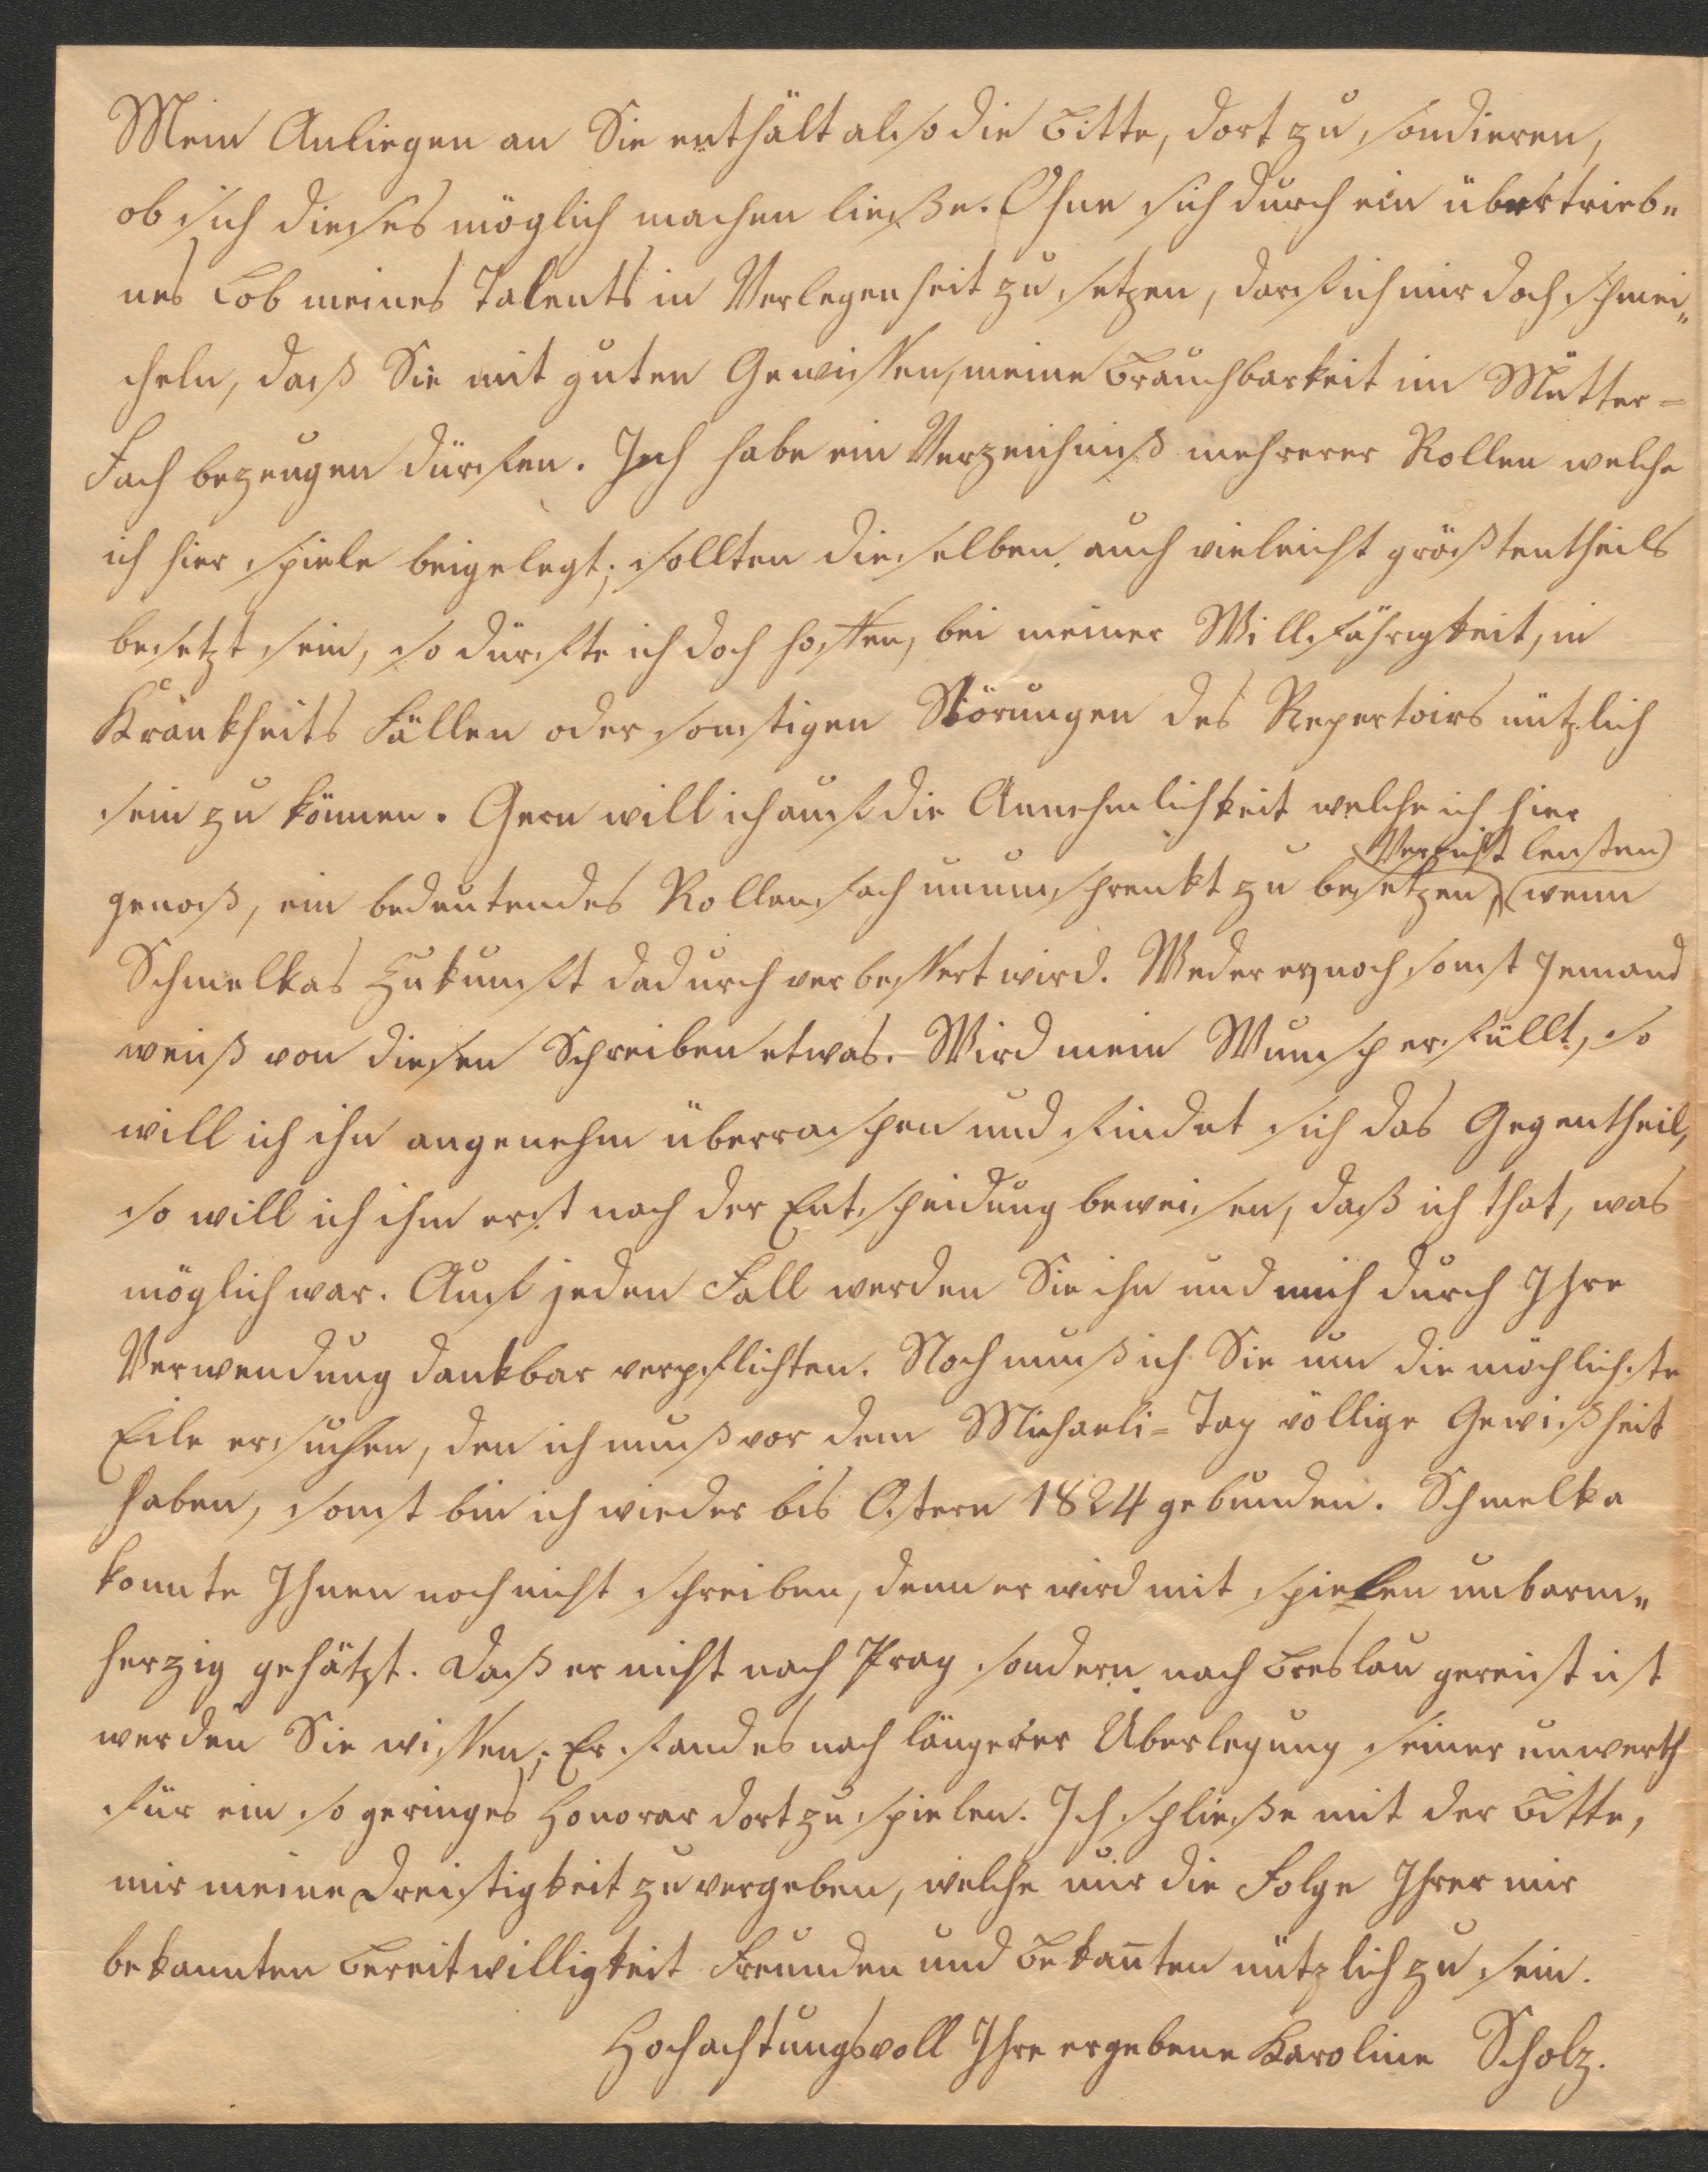 Mein Anliegen an Sie enthält also die Bitte, dort zu sondieren,
ob sich dieses möglich machen ließe. Ohne sich durch ein übertrieb„
nes Lob meines Talents in Verlegenheit zu setzen, darf ich mir doch schmei„
cheln, daß Sie mit guten Gewissen, meine Brauchbarkeit im Mütter=
Fach bezeugen dürfen. Ich habe ein Verzeichniß mehrerer Rollen welche
ich hier spiele beigelegt; sollten dieselben auch vieleicht größtentheils
besetzt sein, so dürfte ich doch hoffen, bei meiner Willfährigkeit, in
Krankheits Fällen oder sonstigen Störungen des Repertoirs nützlich
sein zu können. Gern will ich auf die Annehmlichkeit welche ich hier
Verzicht leisten
genoß, ein bedeutendes Rollenfach unumschrenkt zu besetzen, wenn
Schmelkas Zukunft dadurch verbessert wird. Weder er, noch sonst Jemand
weiß von diesen Schreiben etwas. Wird mein Wunsch erfüllt, so
will ich ihn angenehm überraschen und findet sich das Gegentheil,
so will ich ihm erst nach der Entscheidung beweisen, daß ich that, was
möglich war. Auf jeden Fall werden Sie ihn und mich durch Ihre
Verwendung dankbar verpflichten. Noch muß ich Sie um die möchlichste
Eile ersuchen, den ich muß vor dem Michaeli=Tag völlige Gewißheit
haben, sonst bin ich wieder bis Ostern 1824 gebunden. Schmelka
konnte Ihnen noch nicht schreiben, denn er wird mit spielen unbarm„
herzig gehätzt. Daß er nicht nach Prag sondern nach Breslau gereist ist
werden Sie wissen; Er fand es nach längerer Überlegung seiner unwerth
für ein so geringes Honorar dort zu spielen. Ich schließe mit der Bitte,
mir meine Dreistigkeit zu vergeben, welche nur die Folge Ihrer mir
bekannten Bereitwilligkeit Freunden und Bekan̄ten nützlich zu sein.
Hochachtungsvoll Ihre ergebene Karoline Scholz.